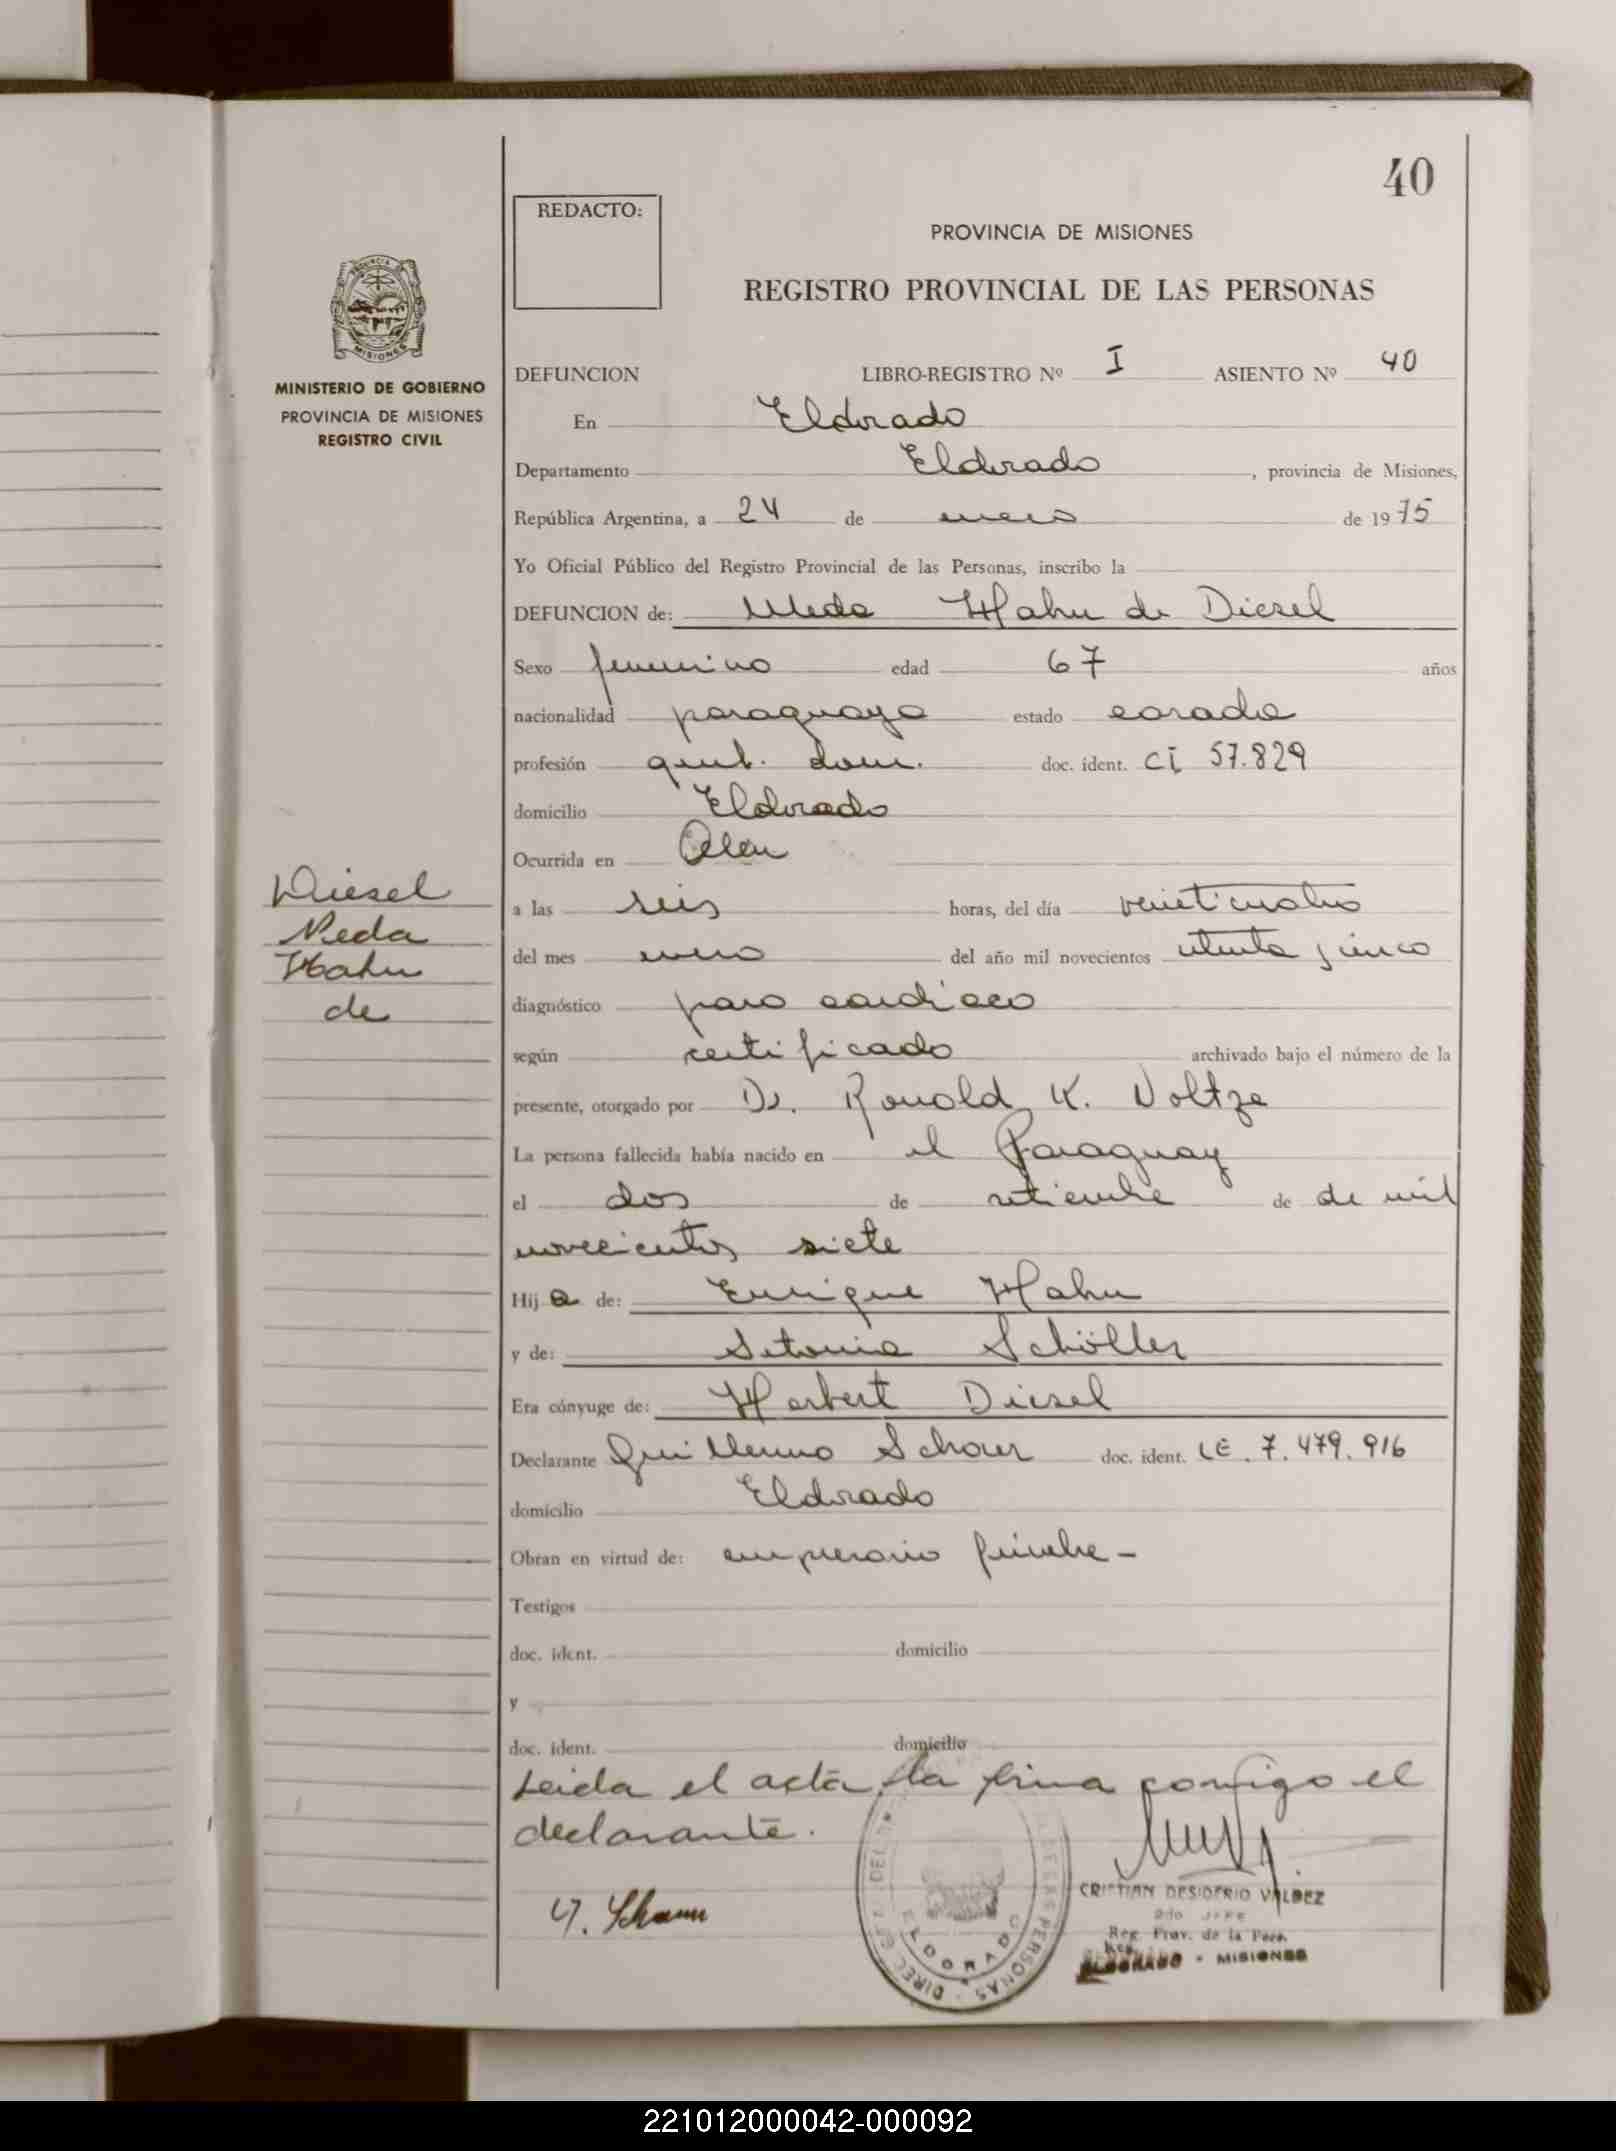 40
REDACTO:
PROVINCIA DE MISIONES
REGISTRO PROVINCIAL DE LAS PERSONAS
MINISTERIO DE GOBIERNO
PROVINCIA DE MISIONES
REGISTRO CIVIL
DEFUNCION LIBRO-REGISTRO Nº I ASIENTO Nº 40
En Eldorado
Departamento Eldorado, provincia de Misiones,
República Argentina, a 24 de enero de 1975
Yo Oficial Público del Registro Provincial de las Personas, inscribo la
DEFUNCION de: Hahn de Diesel
Sexo femenino edad 67 años
nacionalidad paraguaya estado casada
profesión dom. doc. ident. CI 57.829
domicilio Eldorado
Ocurrida en
Diesel
Neda
Hahn
de
a las seis horas, del día veinticuatro
del mes enero del año mil novecientos setenta y cinco
diagnóstico paro cardíaco
según certificado archivado bajo el número de la
presente, otorgado por Dr. Ronald K. Woltze
La persona fallecida había nacido en el Paraguay
el dos de setiembre de de mil
novecientos siete
Hija de: Enrique Hahn
y de: Schöller
Era cónyuge de: Herbert Diesel
Declarante Guillermo doc. ident. LE. 7.479.916
domicilio Eldorado
Obran en virtud de: empresario fúnebre -
Testigos
doc. ident. domicilio
y
doc. ident. domicilio
Leida el acta, la firma conmigo el
declarante.
CRISTIAN DESIDERIO VALDEZ
2do JEFE
Reg. Prov. de la Pers.
ELDORADO - MISIONES
ELDORADO
221012000042-000092